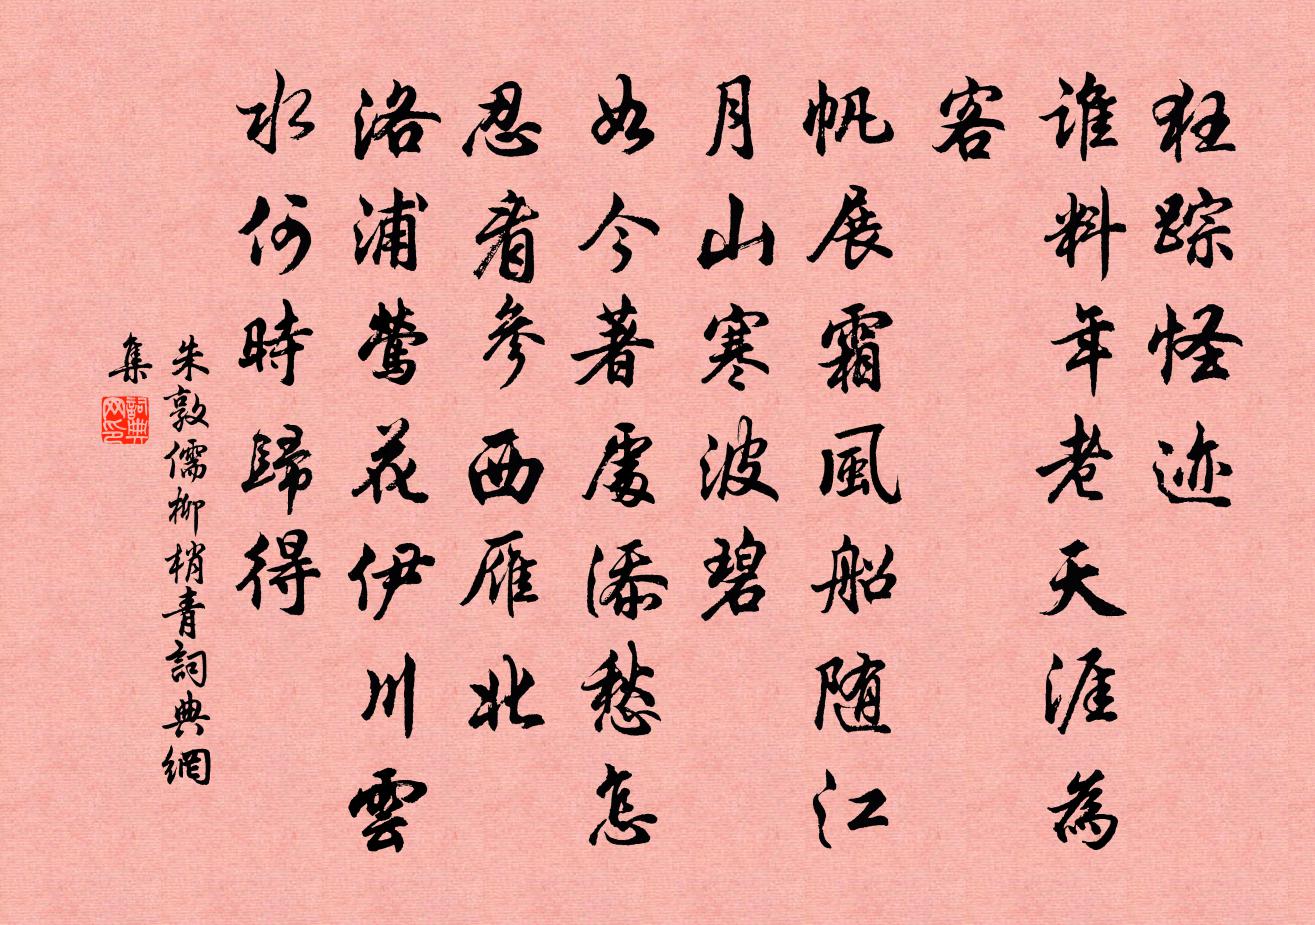 狂踪怪迹
谁料年老天涯為
客
帆展霜風船随江
月山寒波碧
如今著處添愁怎
忍看參西雁北
洛浦鶯花伊川雲
水何時歸得
朱敦儒柳梢青詞典網
集
詞典網印